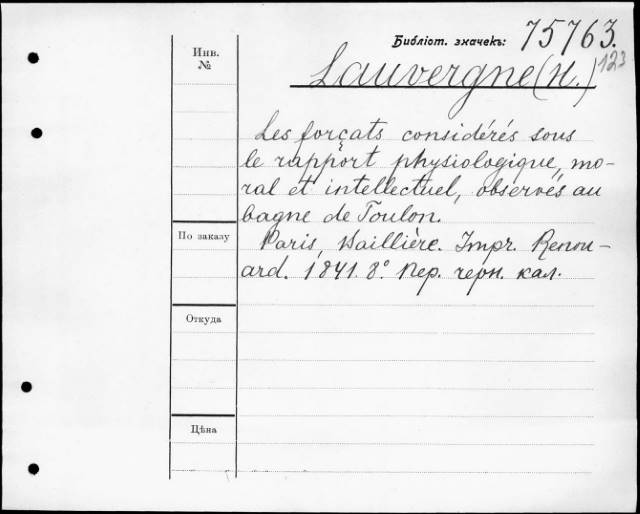 Библіот. значекъ: 75763.
123
Инв.
№
Lauvergne (H.)
Les forçats considérés sous
le rapport physiologique, mo-
ral et intellectuel, observés au
bagne de Toulon.
По заказу
Paris, Baillière. Impr. Renou-
ard. 1841. 8°. Пер. черн. кал.
Откуда
Цѣна